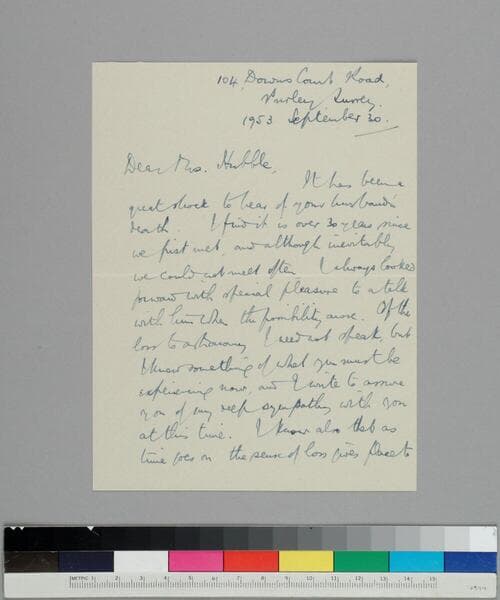 104, Downs Court Road,
Purley, Surrey.
1953 September 30.
Dear Mrs. Hubble,
It has been a
great shock to hear of your husband's
death. I find it is over 30 years since
we first met, and although inevitably
we could not meet often I always looked
forward with special pleasure to a talk
with him when the possibility arose. Of the
loss to astronomy I need not speak, but
I know something of what you must be
experiencing now, and I write to assure
you of my deep sympathy with you
at this time. I know also that as
time goes on the sense of loss gives place to
METRIC 1 2 3 4 5 6 7 8 9 10 11 12 13 14 15